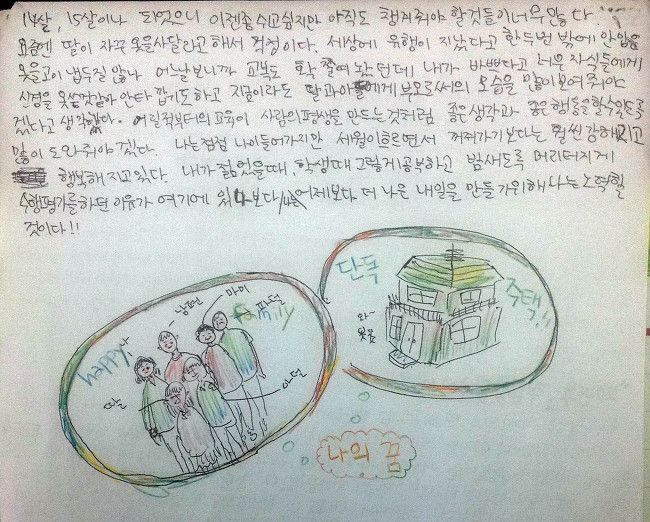 14살, 15살이나 되었으니 이젠좀 쉬고싶지만 아직도 챙겨줘야 할것들이너무많다.
요즘엔 딸이 자꾸 옷을사달라고해서 걱정이다. 세상에 유행이 지났다고 한두번 밖에 안입은
옷을 그냥두질 않나 어느날보니까 교복도 확 줄여 놨던데 내가 바쁘다고 너무 자식들에게
신경을 못쓴것같아 안타 깝기도하고 지금이라도 딸과아들에게 부모로써의 모습을 많이보여줘야
겠다고 생각했다. 어릴적부터의 교육이 사람의평생을 만드는것처럼 좋은생각과 좋은행동을할수있도록
많이 도와줘야 겠다. 나는점점 나이들어가지만 세월이흐르면서 꺼져가기보다는 훨씬 강해지고
행복해 지고있다. 내가 젊었을때, 학생때 그렇게공부하고 밤새도록 머리터지게
수행평가를하던 이유가 여기에 있나보다. 어제보다 더 나은 내일을 만들기위해 나는 노력할
것이다!!
단독
주택!!
마당
남편
마미
파덜
family
happy
딸
아덜
나의 꿈